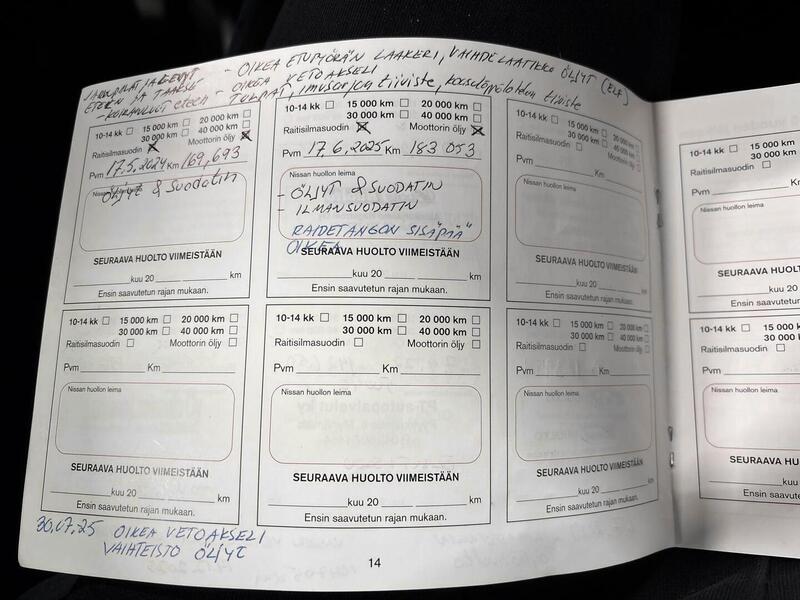 JARRUPALAT JA LEVYT - OIKEA ETUPYÖRÄN LAAKERI, VAIHDELAATIKKO ÖLJYT (ELF)
ETEEN JA TAAKSE - OIKEA VETOAKSELI
- KOIRANLUUT eteen - TULPAT, imusarjan tiiviste,
10-14 kk 15 000 km 20 000 km
30 000 km 40 000 km
Raitisilmasuodin Moottorin öljy
Pvm 17.5.2024 Km 169,693
Nissan huollon leima
ÖLJYT & SUODATIN
SEURAAVA HUOLTO VIIMEISTÄÄN
kuu 20 km
Ensin saavutetun rajan mukaan.
10-14 kk 15 000 km 20 000 km
30 000 km 40 000 km
Raitisilmasuodin Moottorin öljy
Pvm 17.6.2025 Km 183 053
Nissan huollon leima
- ÖLJYT & SUODATIN
- ILMANSUODATIN
RAIDETANGON SISÄPÄÄ
OIKEA
SEURAAVA HUOLTO VIIMEISTÄÄN
kuu 20 km
Ensin saavutetun rajan mukaan.
10-14 kk 15 000 km 20 000 km
30 000 km 40 000 km
Raitisilmasuodin Moottorin öljy
Pvm Km
Nissan huollon leima
SEURAAVA HUOLTO VIIMEISTÄÄN
kuu 20 km
Ensin saavutetun rajan mukaan.
10-14 kk 15 000 km
30 000 km
Raitisilmasuodin
Pvm
Nissan huollon leima
SEURAAVA HUOLTO
kuu 20
Ensin saavutetun
10-14 kk 15 000 km 20 000 km
30 000 km 40 000 km
Raitisilmasuodin Moottorin öljy
Pvm Km
Nissan huollon leima
SEURAAVA HUOLTO VIIMEISTÄÄN
kuu 20 km
Ensin saavutetun rajan mukaan.
10-14 kk 15 000 km 20 000 km
30 000 km 40 000 km
Raitisilmasuodin Moottorin öljy
Pvm Km
Nissan huollon leima
SEURAAVA HUOLTO VIIMEISTÄÄN
kuu 20 km
Ensin saavutetun rajan mukaan.
10-14 kk 15 000 km 20 000 km
30 000 km 40 000 km
Raitisilmasuodin Moottorin öljy
Pvm Km
Nissan huollon leima
SEURAAVA HUOLTO VIIMEISTÄÄN
kuu 20 km
Ensin saavutetun rajan mukaan.
10-14 kk 15 000 km
30 000
Raitisilmasuodin
Pvm
Nissan huollon leima
SEURAAVA HUOLTO
kuu 20
Ensin saavutetun
30.07.25 OIKEA VETOAKSELI
VAIHTEISTO ÖLJYT
14